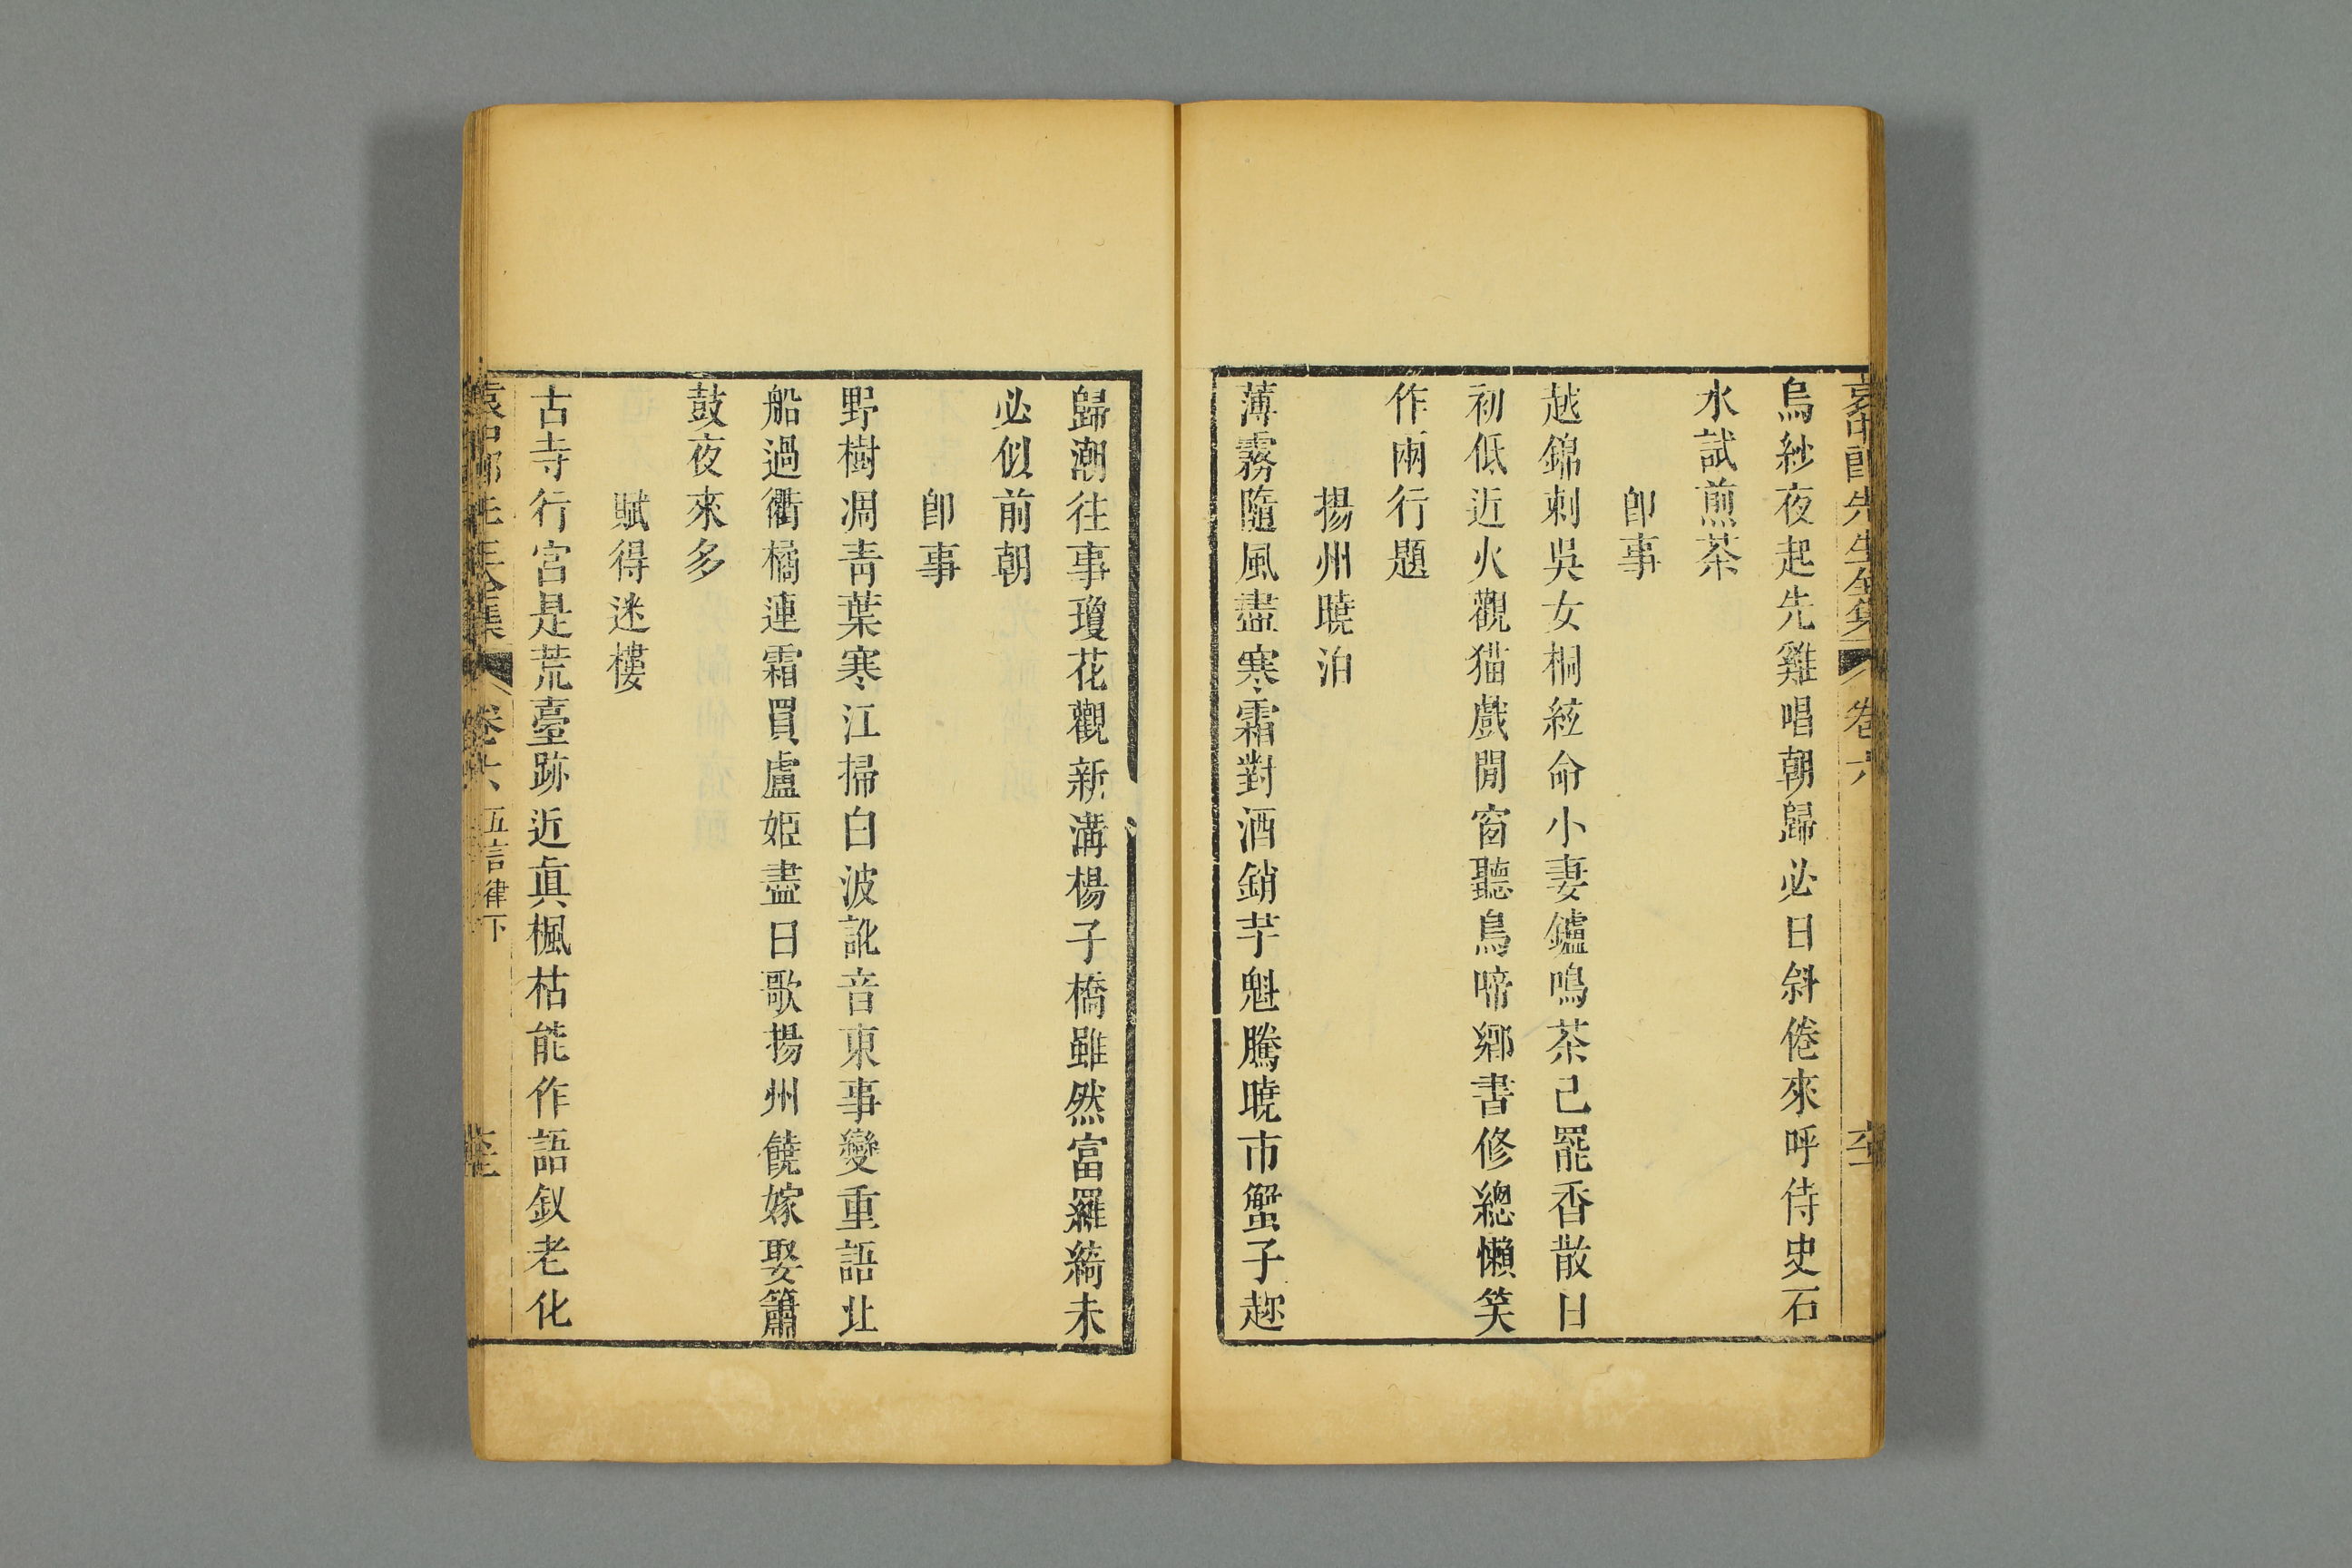 先生全集 卷六
烏紗夜起先雞唱朝歸必日斜倦來呼侍史石
水試煎茶
卽事
越錦刺吳女桐絃命小妻鑪鳴茶已罷香散日
初低近火觀猫戲閒窗聽鳥啼鄉書修總懶笑
作兩行題
揚州曉泊
薄霧隨風盡寒霜對酒銷芋魁騰曉市蟹子趂
歸潮往事瓊花觀新溝楊子橋雖然富羅綺未
必似前朝
卽事
野樹凋青葉寒江掃白波訛音東事變重語北
船過衢橘連霜買盧姬盡日歌揚州饒嫁娶簫
鼓夜來多
賦得迷樓
古寺行宮是荒臺跡近眞楓枯能作語釵老化
袁中郎先生全集 卷六 五言律下